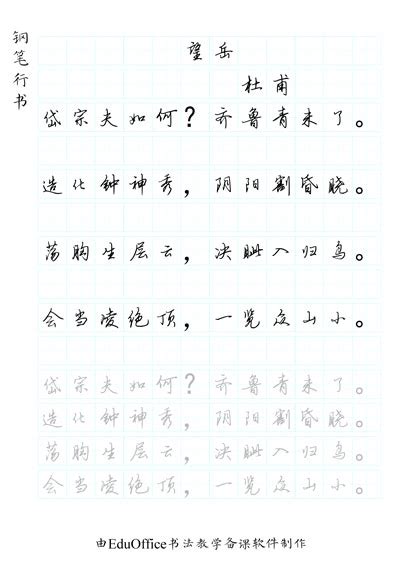 钢笔行书
望岳
杜甫
岱宗夫如何？齐鲁青未了。
造化钟神秀，阴阳割昏晓。
荡胸生层云，决眦入归鸟。
会当凌绝顶，一览众山小。
岱宗夫如何？齐鲁青未了。
造化钟神秀，阴阳割昏晓。
荡胸生层云，决眦入归鸟。
会当凌绝顶，一览众山小。
由EduOffice书法教学备课软件制作